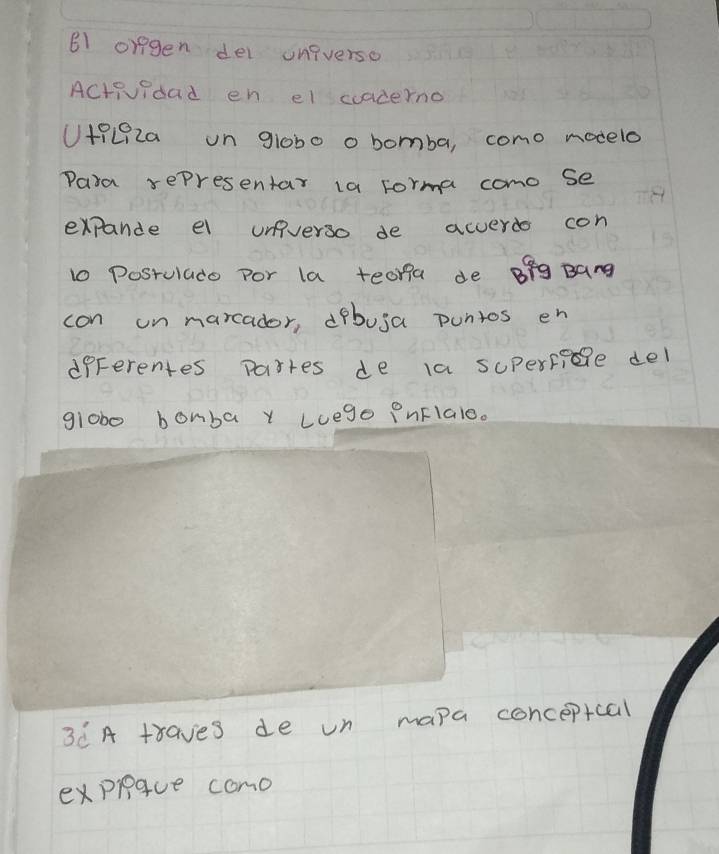 El origen del universo
Actividad en el cuaderno
Utiliza un globo o bomba, como modelo
Para representar la forma como se
expande el universo de acuerdo con
lo Postulado Por la teoria de Big Bang
con un marcador, dibuja puntos en
diferentes Partes de la superficie del
globo bomba y Luego inflalo.
3¿ A traves de un mapa conceptual
explique como